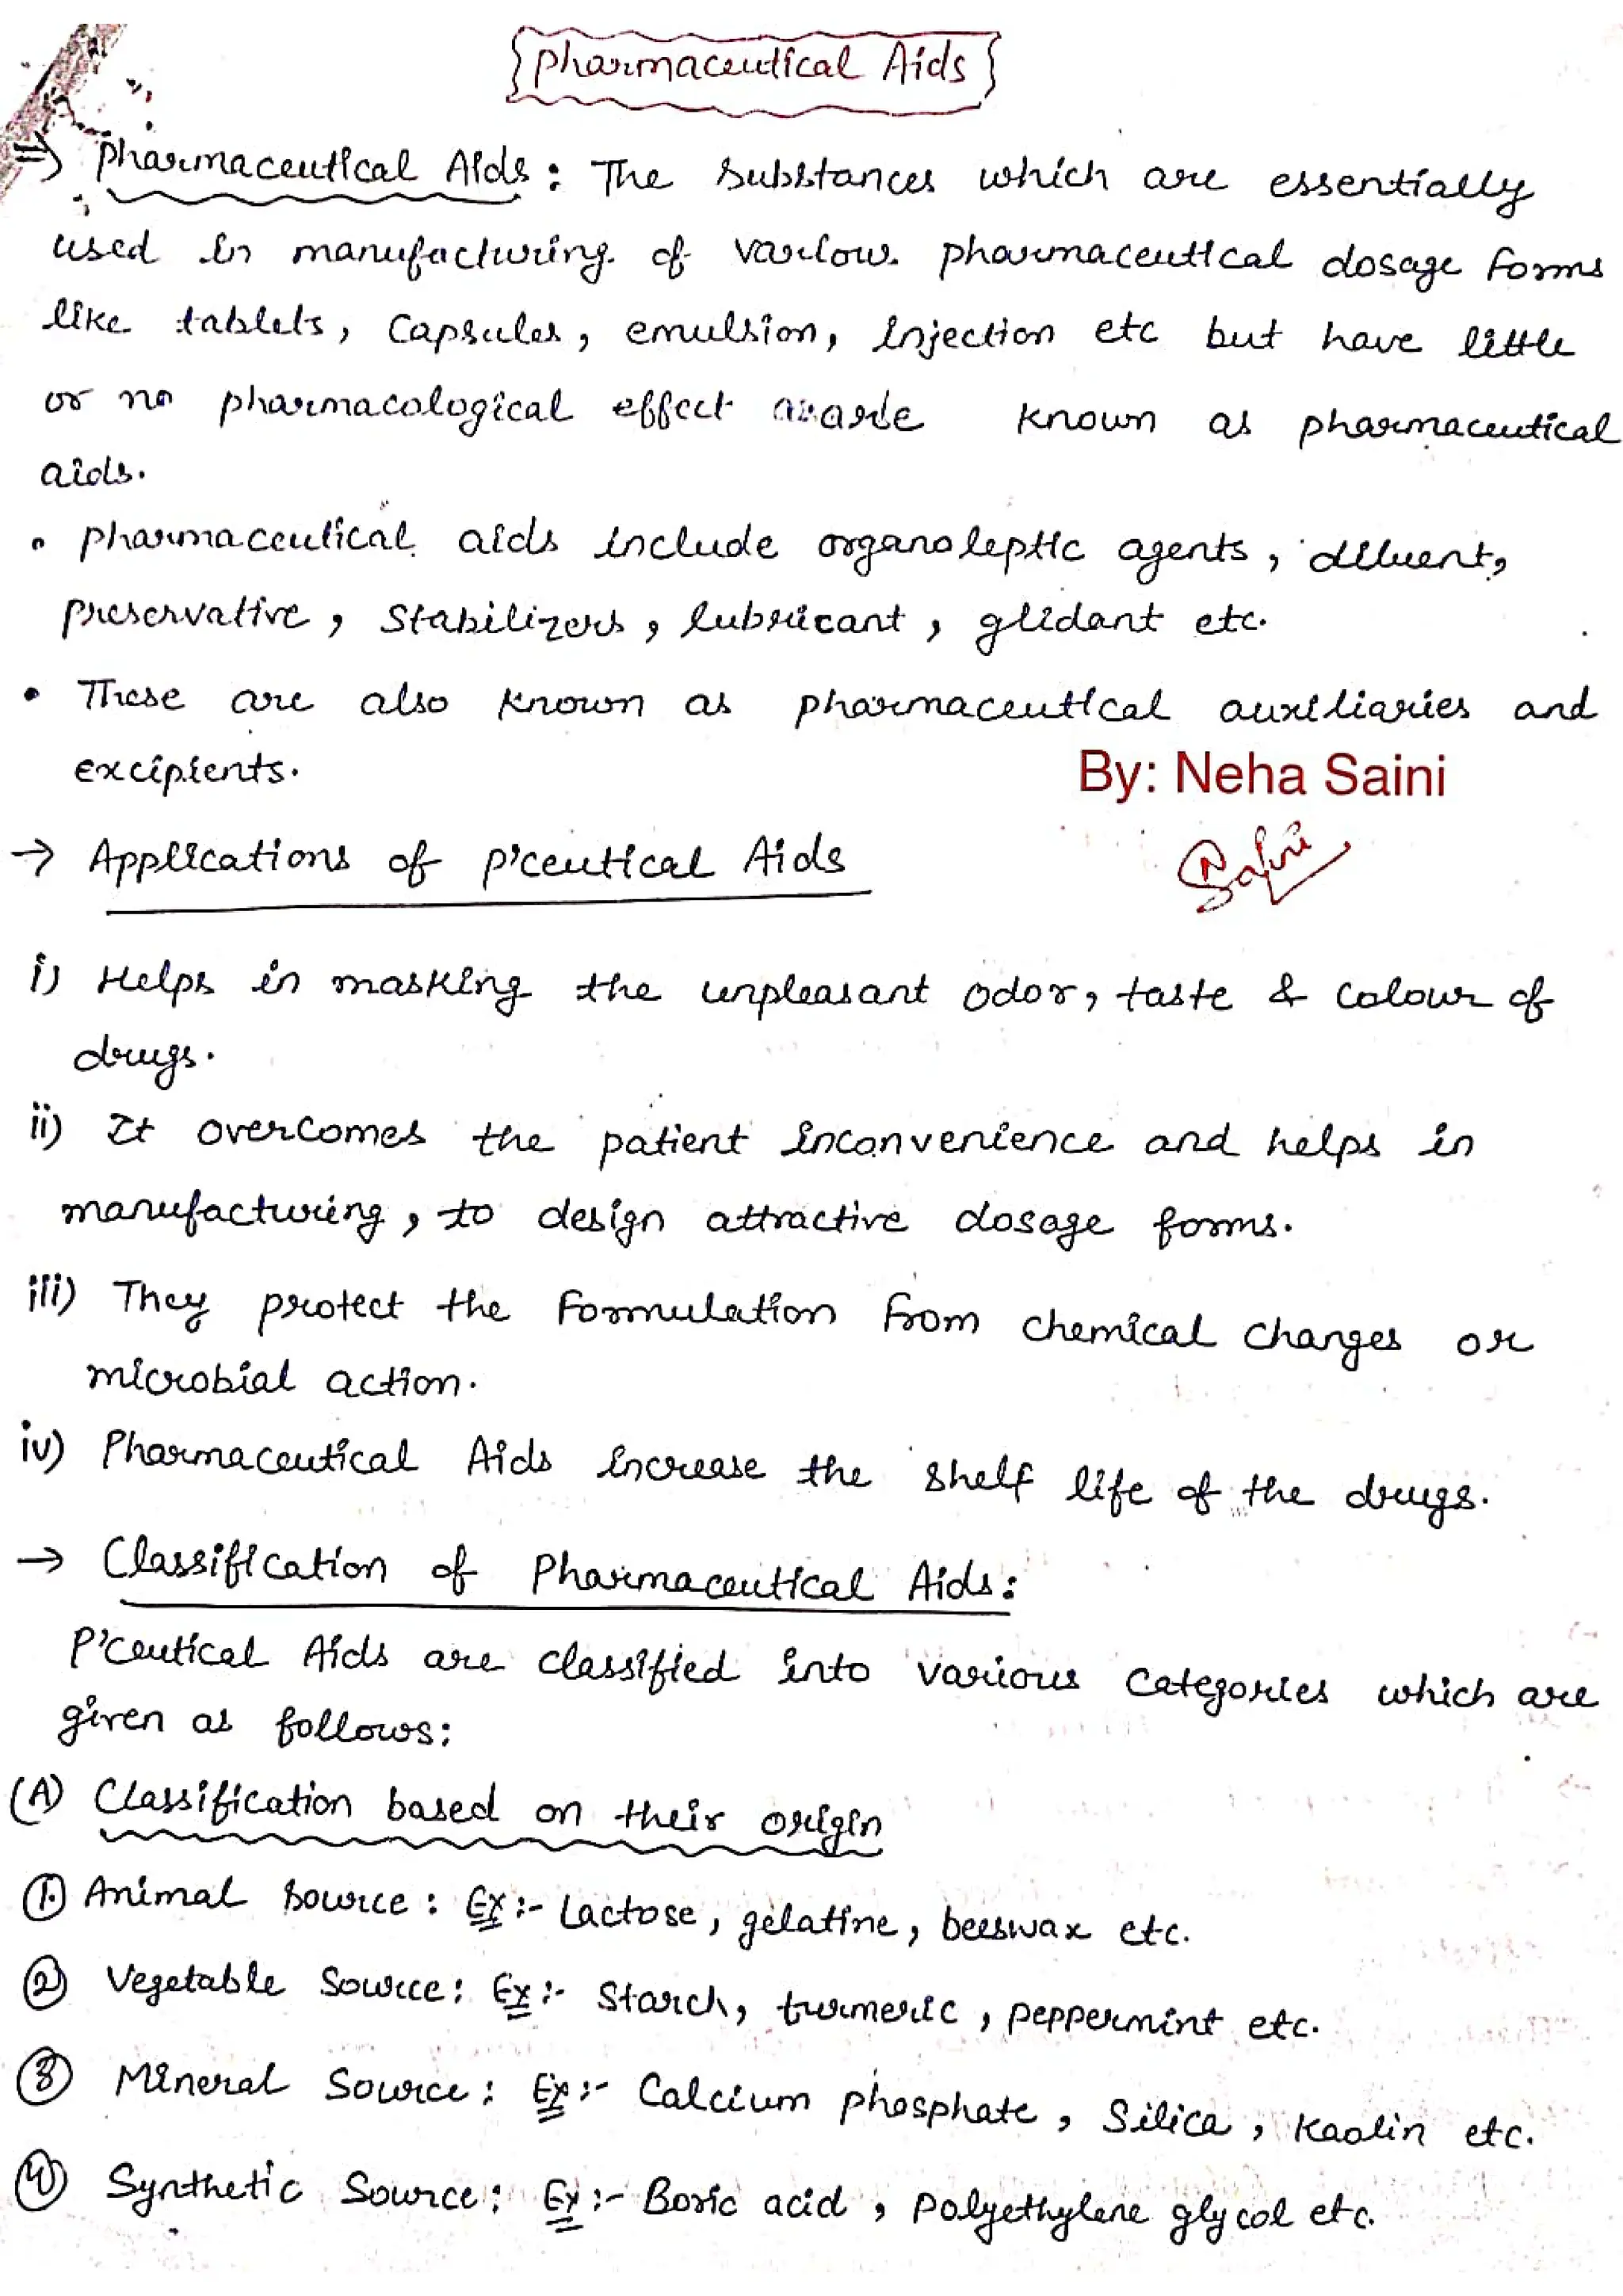 Pharmaceutical Aids
⇒ Pharmaceutical Aids : The substances which are essentially
used in manufacturing of various pharmaceutical dosage forms
like tablets, Capsules, emulsion, Injection etc but have little
or no pharmacological effect are known as pharmaceutical
aids.
• pharmaceutical aids include organoleptic agents, diluent,
preservative, Stabilizers, lubricant, glidant etc.
• These are also known as pharmaceutical auxiliaries and
excipients.
By: Neha Saini
Saini
→ Applications of P'ceutical Aids
i) Helps in masking the unpleasant odor, taste & colour of
drugs.
ii) It overcomes the patient inconvenience and helps in
manufacturing, to design attractive dosage forms.
iii) They protect the Formulation from chemical changes or
microbial action.
iv) Pharmaceutical Aids increase the shelf life of the drugs.
→ Classification of Pharmaceutical Aids:
P'ceutical Aids are classified into various categories which are
given as follows:
(A) Classification based on their origin
① Animal source : Ex:- Lactose, gelatine, beeswax etc.
② Vegetable Source: Ex:- Starch, turmeric, peppermint etc.
③ Mineral Source: Ex:- Calcium phosphate, Silica, Kaolin etc.
④ Synthetic Source: Ex:- Boric acid, Polyethylene glycol etc.